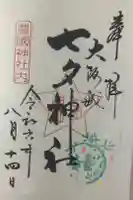 奉拝
大阪城
七夕神社
令和六年
八月十四日